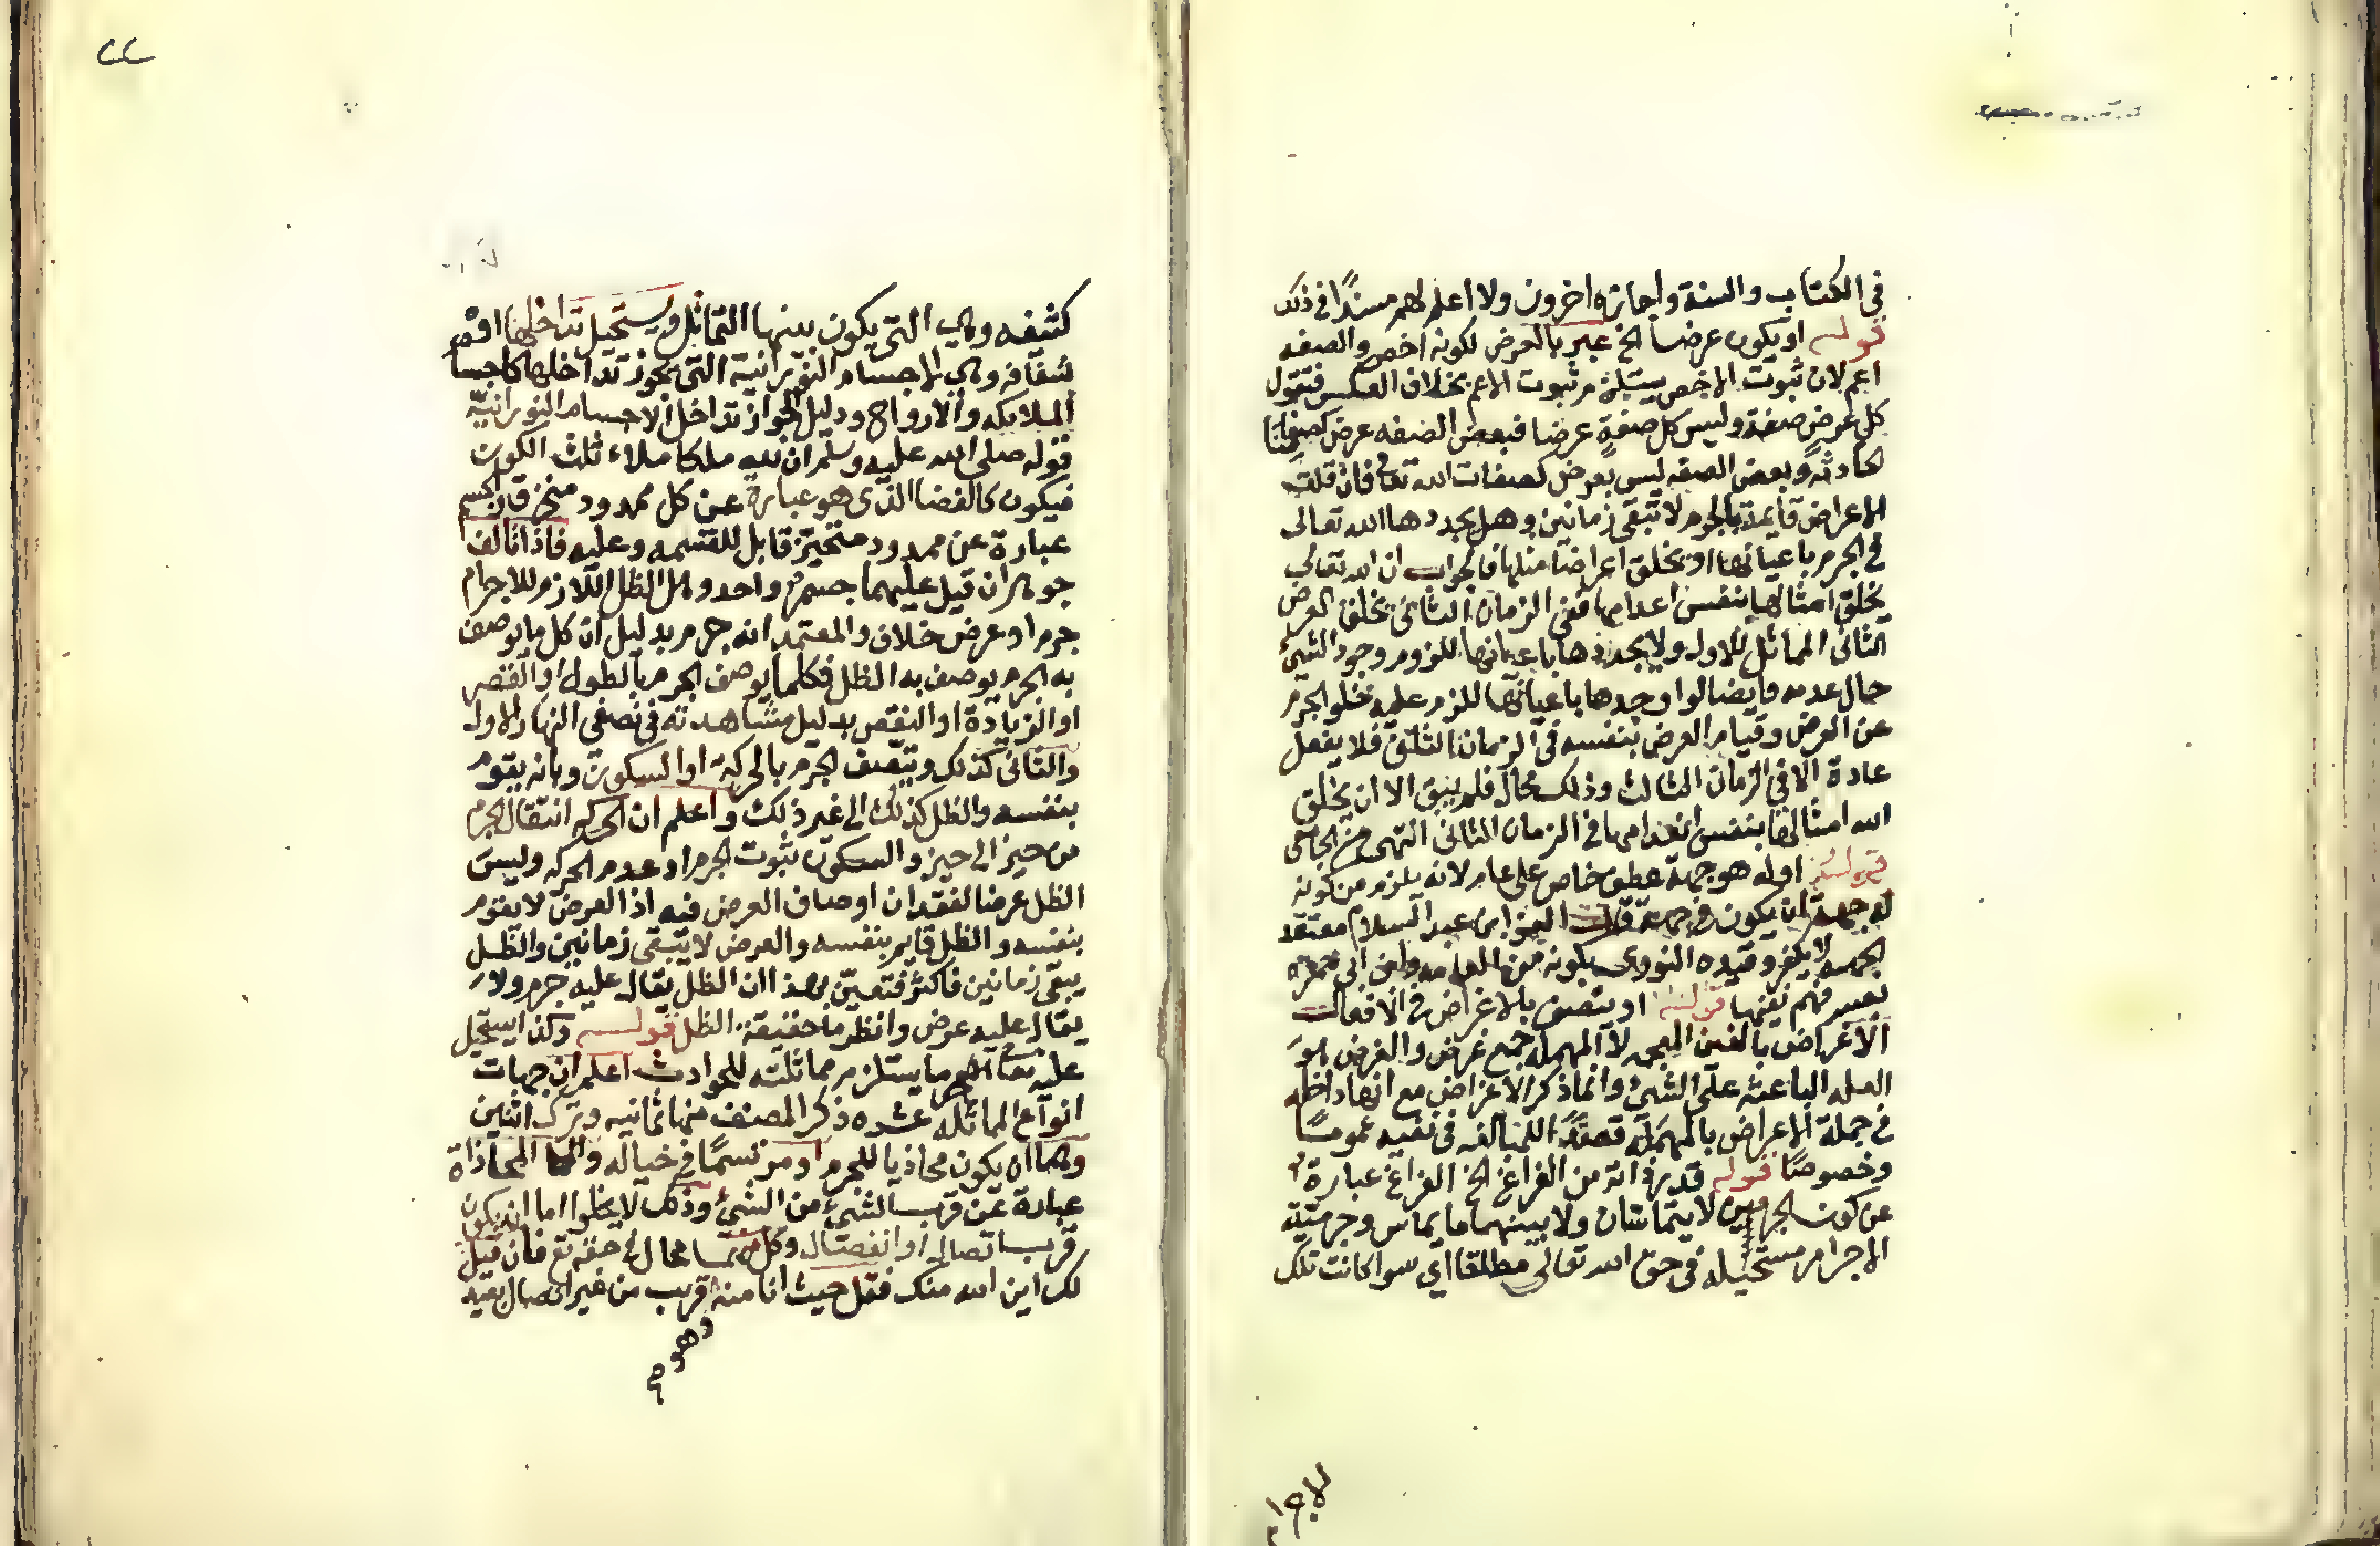 في الكتاب والسنة واجازه اخرون ولا اعلم لهم مسندًا في ذلك
قوله او يكون عرضا الخ عبر بالعرض لكونه اخص والصفه
اعم لان ثبوت الاخص يستلزم ثبوت الاعم بخلاف العكس فتقول
كل عرض صفة وليس كل صفةٍ عرضا فبعض الصفه عرض كصفاتنا
الحادثه وبعض الصفه ليس بعرض كصفات الله تعالى فان قلت
الاعراض قايمة بالجرم لا تبقى زمانين وهل يجددها الله تعالى
في الجرم باعيانها او يخلق اعراضا مثلها فالجواب ان الله تعالى
يخلق امثالها بنفس اعدامها ففي الزمان الثاني يخلق العرض
الثاني المماثل للاول ولا يجددها باعيانها للزوم وجود الشيئ
حال عدمه وايضا لو اوجدها باعيانها للزم عليه خلو الجرم
عن العرض وقيام العرض بنفسه في الزمان الثاني فلا يفعل
عادة الا في الزمان الثالث وذلك محال فلم يبق الا ان يخلق
الله امثالها بنفس انعدامها في الزمان الثاني انتهى من
قوله اوله هو جهة عطف خاص على عام لانه يلزم من كونه
له جهة ان يكون في جهة قال العز ابن عبد السلام معتقد
الجهه لا يكفر وقيده النووي بكونه من العامه وابن ابي جمرة
بعسر فهم نفيها قوله او يتصف بالاغراض في الافعال
الاغراض بالغين المعجمه لا المهمله جمع غرض والغرض هو
العله الباعثه على الشيئ وانما ذكر الاغراض مع انها داخله
في جملة الاعراض بالمهملة قصدًا للمبالغه في نفيه عمومًا
وخصوصًا قوله قدر ذاته من الفراغ الخ الفراغ عبارة
عن كون الجرمين لا يتماسان ولا بينهما ما يماس وجرمية
الاجرام مستحيله في حق الله تعالى مطلقا اي سوا كانت تلك
كثيفه وهي التي يكون بينها التماثل ويستحيل تداخلها او
شفافه وهي الاجسام النورانية التي يجوز تداخلها كاجسا
الملايكه والارواح ودليل الجواز تداخل الاجسام النورانية
قوله صلى الله عليه وسلم ان لله ملكا ملاء ثلث الكون
فيكون كالفضا الذي هو عبارة عن كل ممدود
عبارة عن ممدود متحيز قابل للقسمه وعليه فاذا تالف
جوهران قيل عليهما جسم واحد وهل الظل اللازم للاجرام
جرم او عرض خلاف والمعتمد انه جرم بدليل ان كل ما يوصف
به الجرم يوصف به الظل فكلما يوصف الجرم بالطول او القصر
او الزيادة او النقص بدليل مشاهدته في نصفي النهار الاول
والثاني كذلك ويتصف الجرم بالحركة او السكون وبانه يقوم
بنفسه والظل كذلك الى غير ذلك واعلم ان الحركه انتقال الجرم
من حيز الى حيز والسكون ثبوت الجرم او عدم الحركه وليس
الظل عرضا لفقدان اوصاف العرض فيه اذ العرض لا يقوم
بنفسه والظل قايم بنفسه والعرض لا يبقى زمانين والظل
يبقى زمانين فاكثر فتعين بهذا ان الظل يقال عليه جرم ولا
يقال عليه عرض وانظر ما حقيقة الظل قوله وكذا يستحيل
عليه تعالى ما يستلزم مماثلته للحوادث اعلم ان جهات
انواع المماثله عشره ذكر المصنف منها ثمانيه وترك اثنين
وهما ان يكون محاذيا للجرم او مرتسمًا في خياله والمحاذاة
عبارة عن قرب الشيئ من الشيئ وذلك لا يخلوا اما ان يكون
قرب اتصال او انفصال وكل منهما محال في حقه تع فان قيل
لك اين الله منك فقل حيث انا منه قريب من غير اتصال بعيد
وهو
الاجرام
٢٢